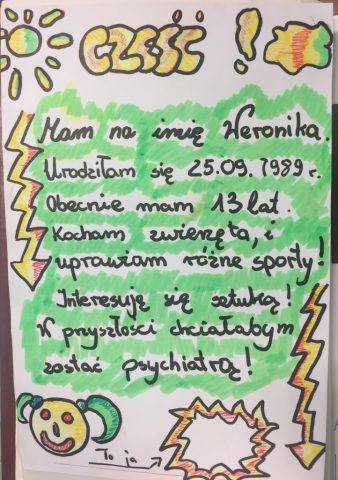 CZEŚĆ!
Mam na imię Weronika.
Urodziłam się 25.09.1989 r.
Obecnie mam 13 lat.
Kocham zwierzęta, i
uprawiam różne sporty!
Interesuję się sztuką!
W przyszłości chciałabym
zostać psychiatrą!
To ja